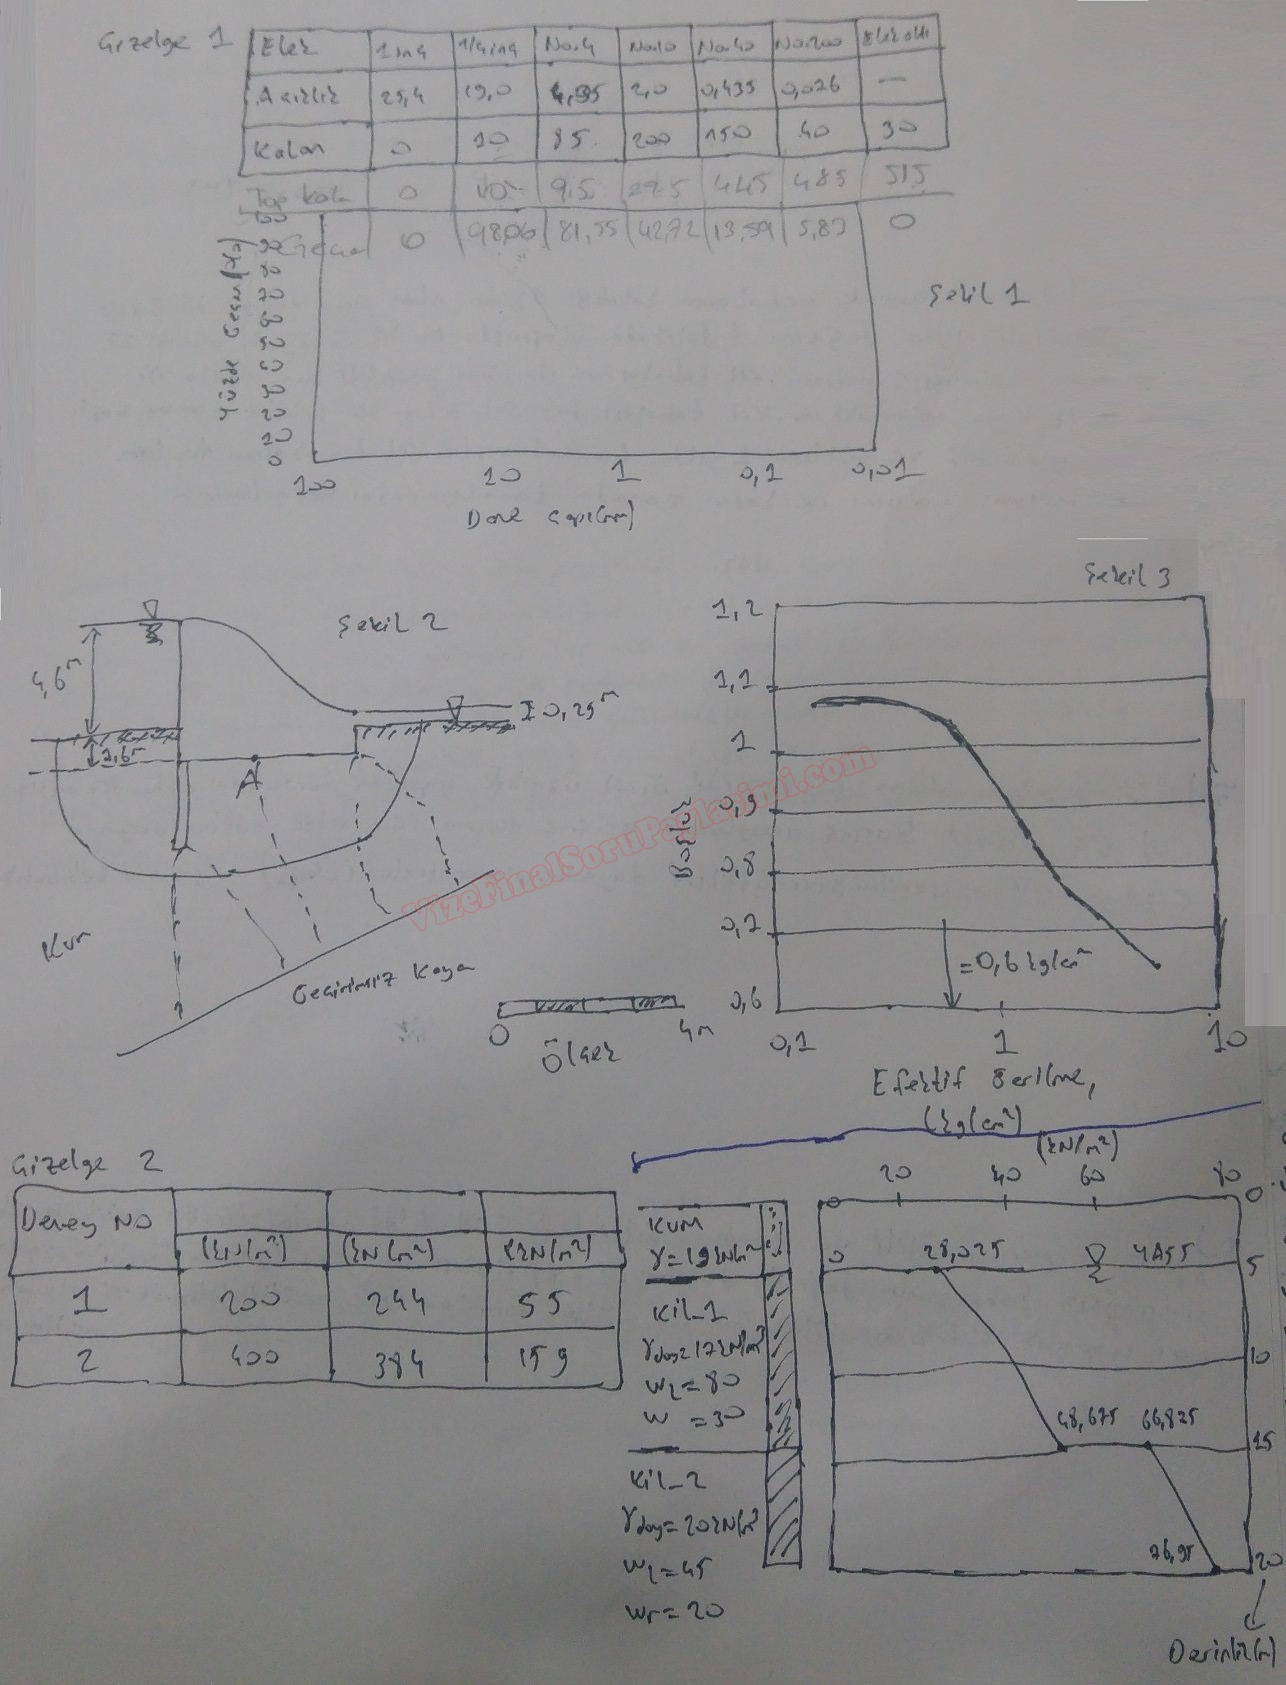 Çizelge 1
Elek 1 inç No.4 No.10 No.40 No.200 Elek altı
25,4 19,0 2,0 —
Kalan 0 10 85 200 150 40 30
0 10 95 295 445 485 515
0 98,06 81,55 42,72 13,59 5,83 0
Şekil 1
Yüzde Geçen (%)
90
80
70
20
10
0
100 10 1 0,1 0,01
Dane Çapı (mm)
Şekil 2
4,6m
0,25m
A
Kum
Geçirimsiz Kaya
0 4m
Ölçek
Şekil 3
1,2
1,1
1
0,9
0,8
0,7
0,6
Boşluk
=0,6 kg/cm²
0,1 1 10
Efektif Gerilme,
(kg/cm²)
VizeFinalSoruPaylasimi.com
Çizelge 2
Deney No
(kN/m²) (kN/m²) (kN/m²)
1 200 244 55
2 400 384 159
KUM
γ=19 kN/m³
Kil_1
γdoy=17kN/m³
WL=80
W =30
Kil_2
γdoy=20kN/m³
WL=45
Wr=20
(kN/m²)
0 20 40 60 80 0
0 28,025 5
10
48,675 66,825 15
76,95 20
Derinlik(m)